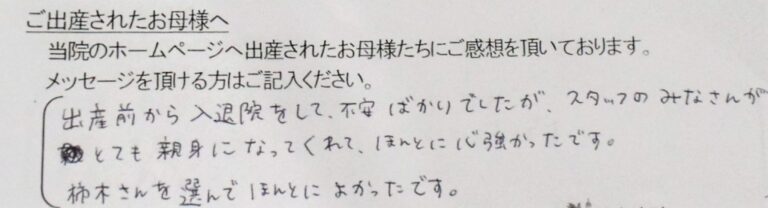 ご出産されたお母様へ
当院のホームページへ出産されたお母様たちにご感想を頂いております。
メッセージを頂ける方はご記入ください。
出産前から入退院をして、不安ばかりでしたが、スタッフのみなさんが
とても親身になってくれて、ほんとに心強かったです。
柿木さんを選んでほんとによかったです。